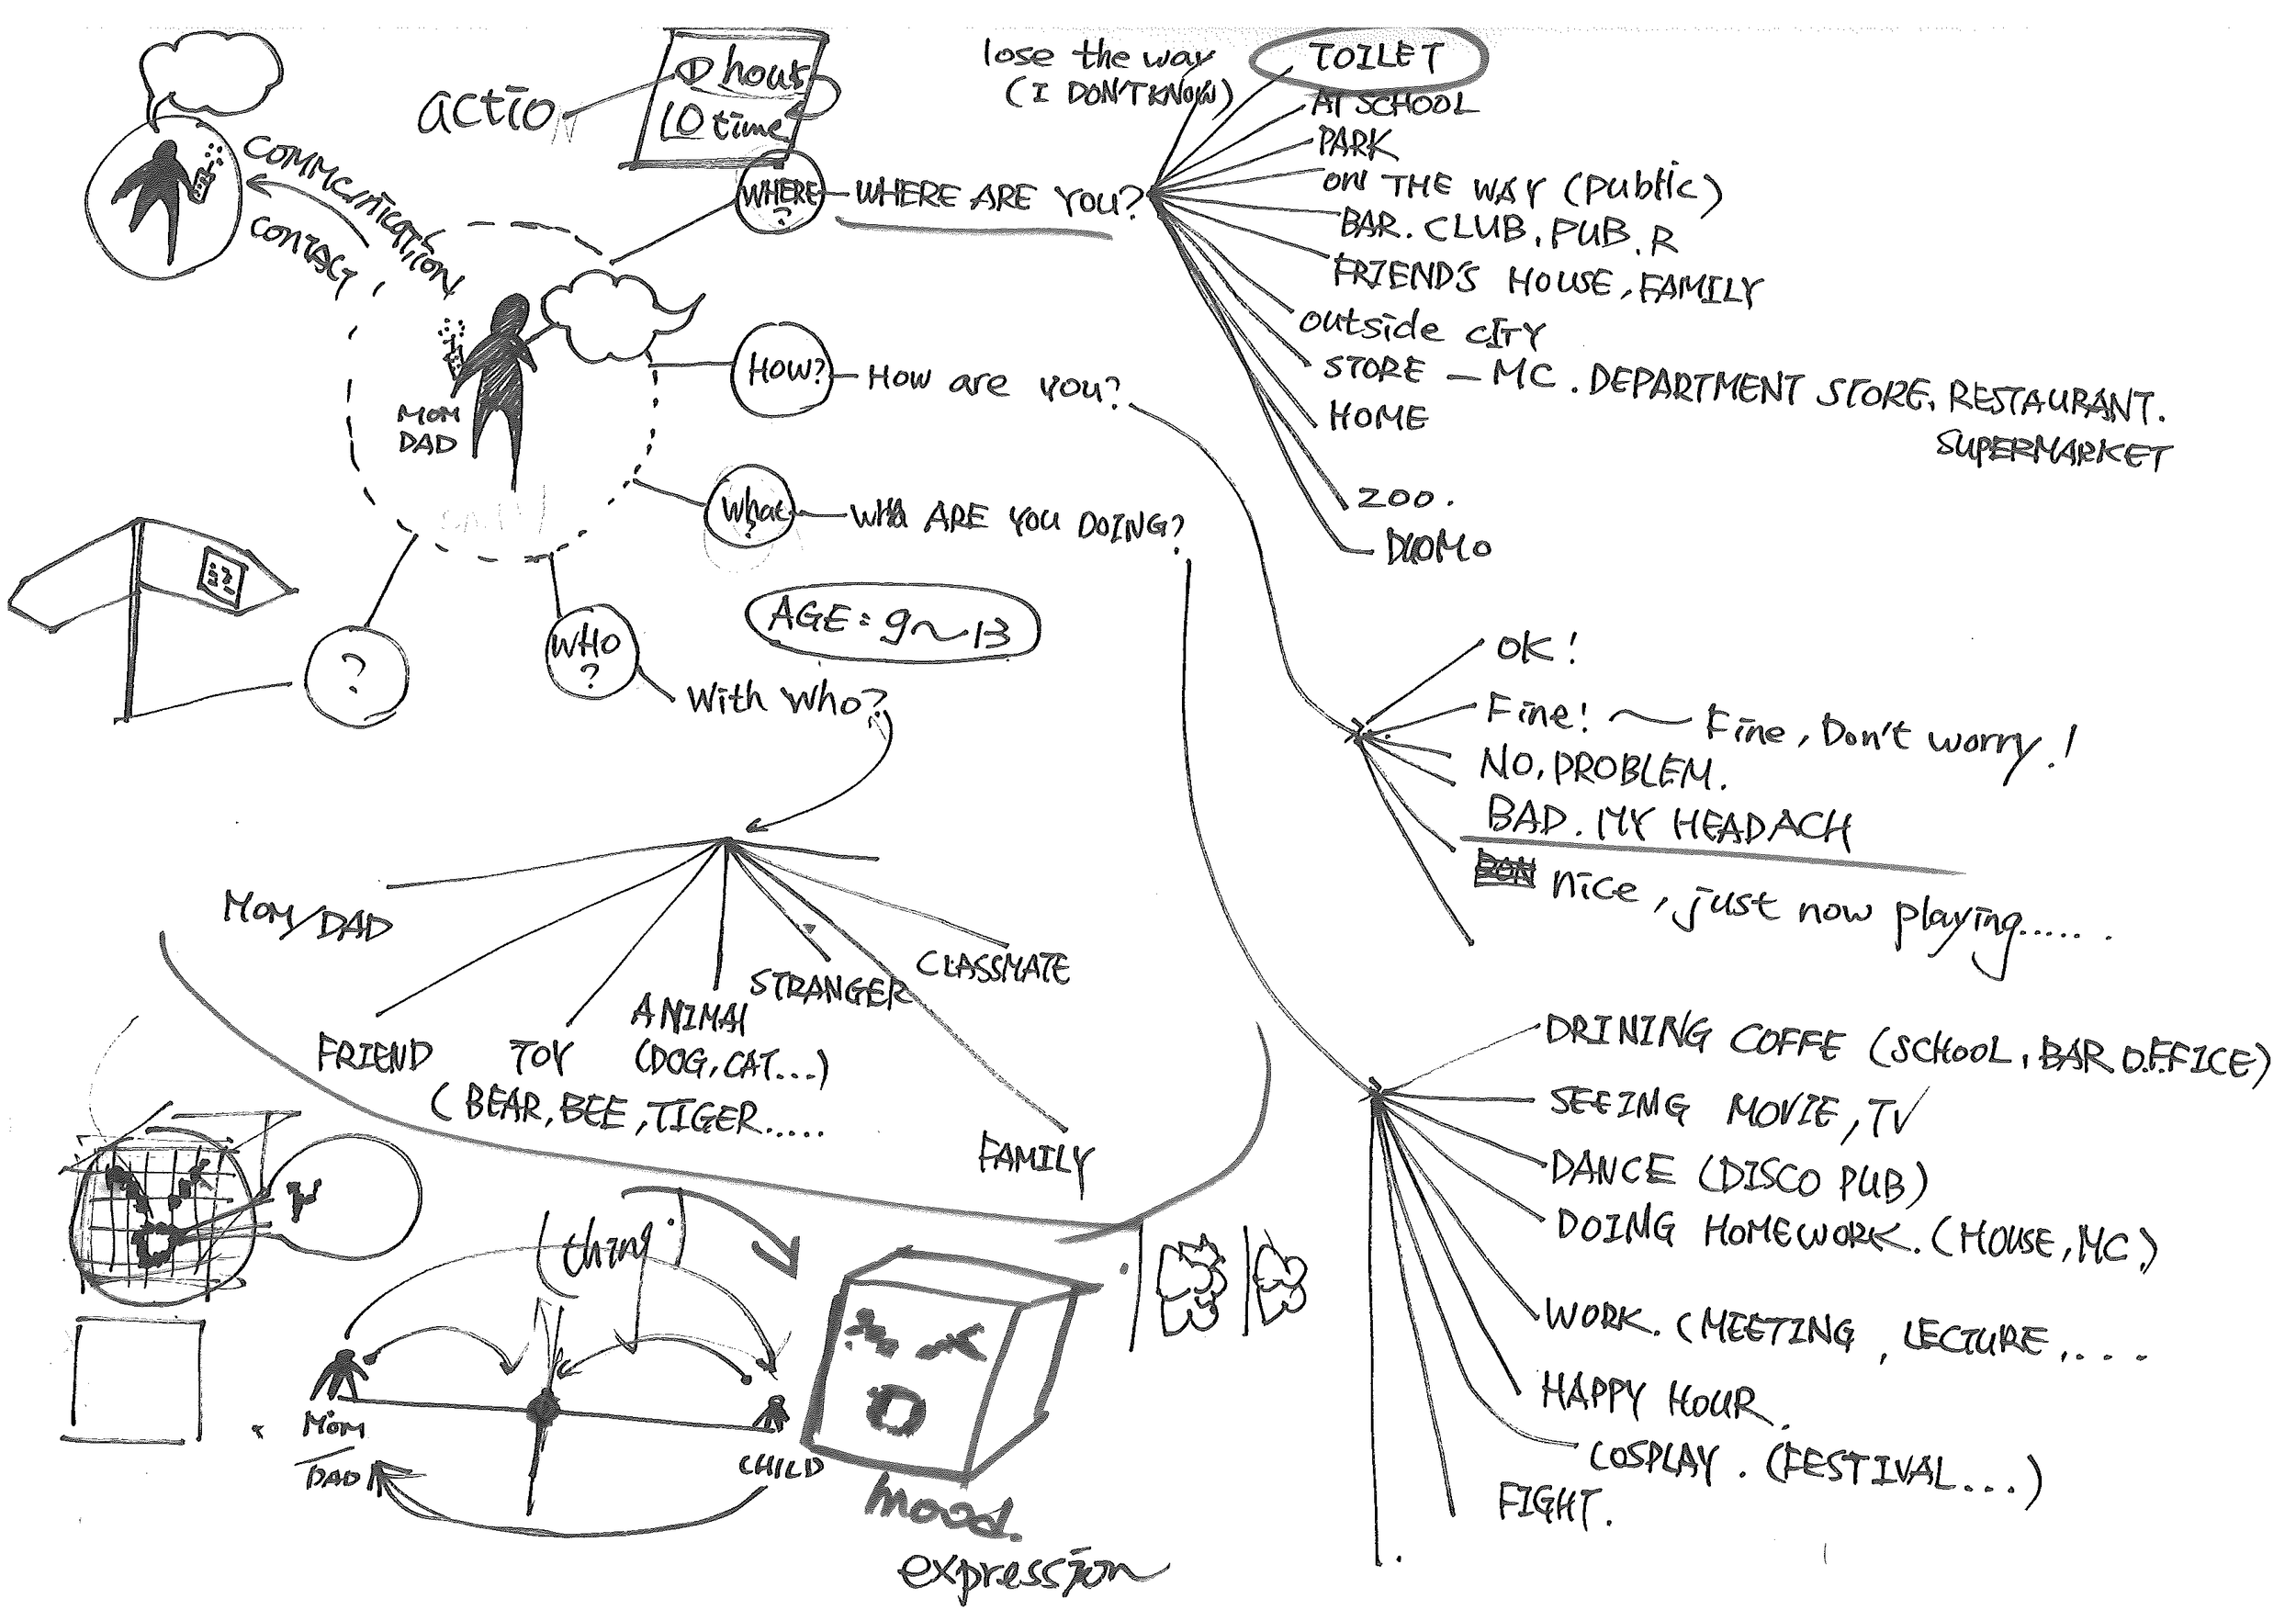 lose the way
(I DON'T KNOW)
TOILET
AT SCHOOL
PARK
ON THE WAY (Public)
BAR. CLUB, PUB. R
FRIEND'S HOUSE, FAMILY
outside CITY
STORE – MC. DEPARTMENT STORE, RESTAURANT.
SUPERMARKET
HOME
ZOO.
DUOMO
action
hours
10 time
COMMUNICATION
CONTACT
MOM
DAD
WHERE
?
WHERE ARE YOU?
HOW?
How are you?
What
?
WHA ARE YOU DOING?
WHO
?
With who?
?
AGE : 9~13
OK!
Fine! ~ Fine, Don't worry!
NO, PROBLEM.
BAD. MY HEADACH
nice, just now playing......
MOM/DAD
FRIEND
TOY
(BEAR, BEE, TIGER.....
ANIMAL
(DOG, CAT...)
STRANGER
CLASSMATE
FAMILY
DRINING COFFE (SCHOOL, BAR OFFICE)
SEEING MOVIE, TV
DANCE (DISCO PUB)
DOING HOMEWORK. (HOUSE, MC)
WORK. (MEETING, LECTURE, ...
HAPPY HOUR.
COSPLAY. (FESTIVAL...)
FIGHT.
(thing)
MOM
DAD
CHILD
mood.
expression